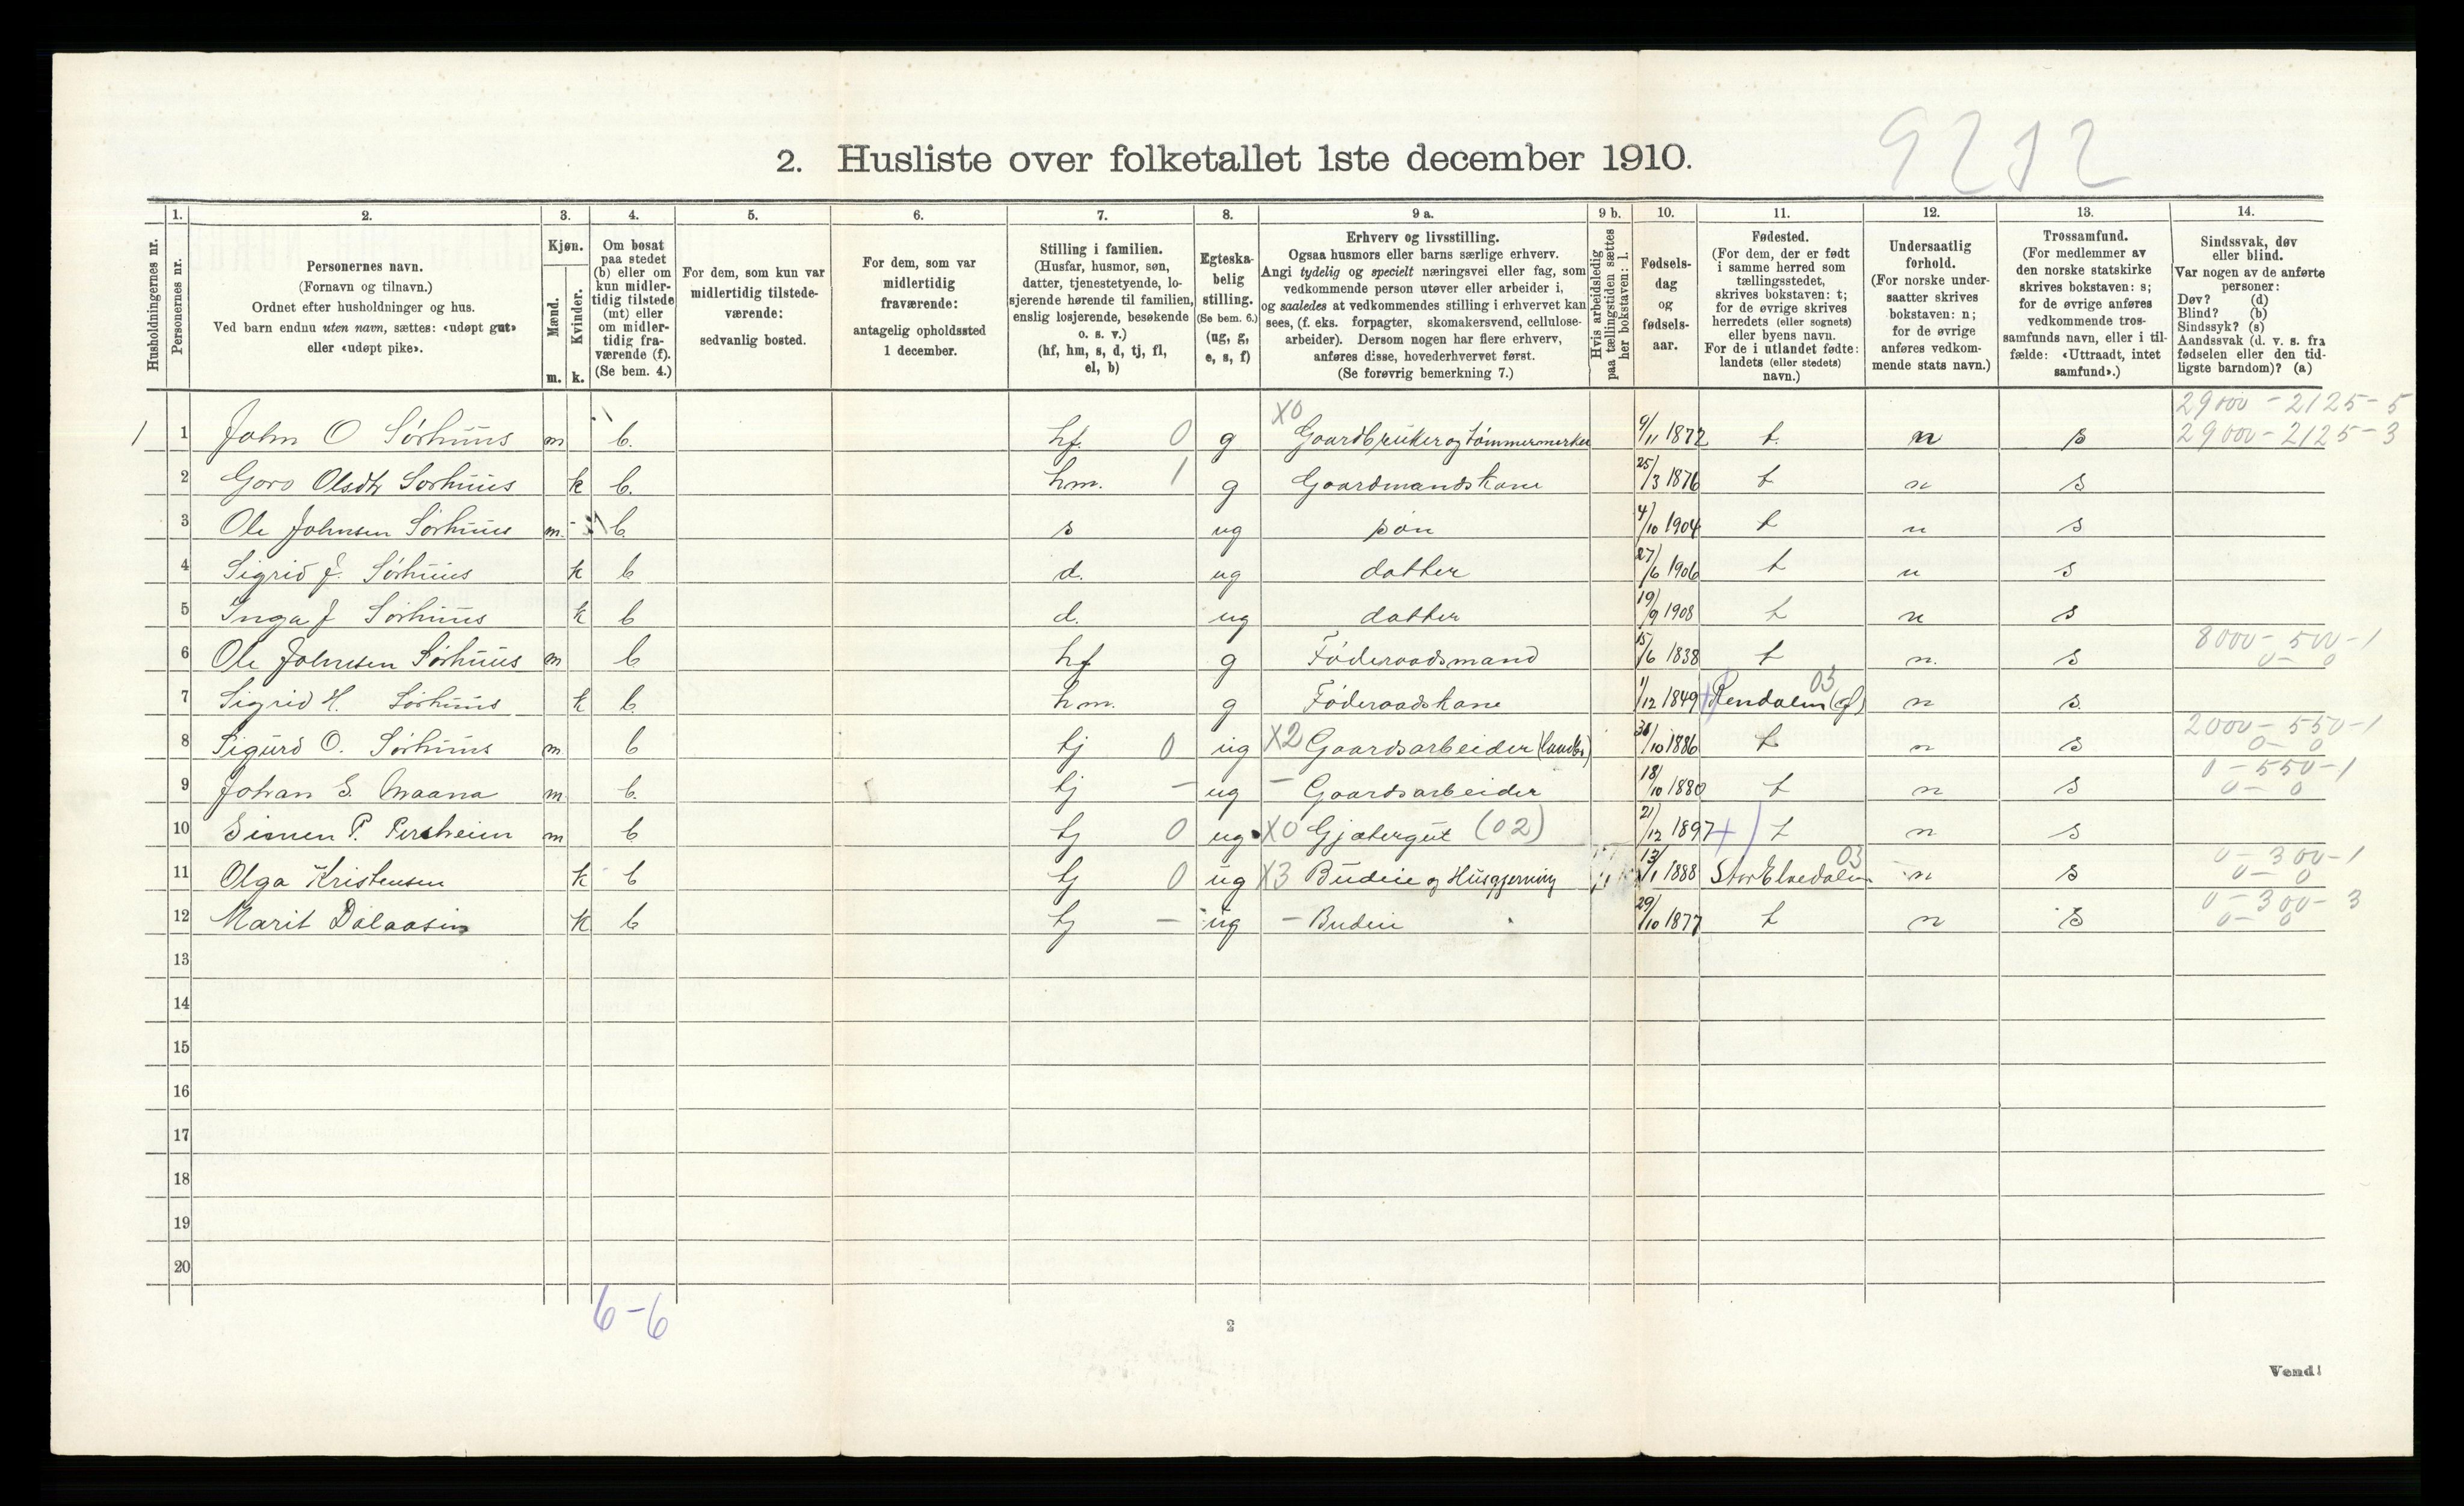 9212
2. Husliste over folketallet 1ste december 1910.
Husholdningernes nr.
1. Personernes nr.
2. Personernes navn.
(Fornavn og tilnavn.)
Ordnet efter husholdninger og hus.
Ved barn endnu uten navn, sættes: «udøpt gut»
eller «udøpt pike».
3. Kjøn.
Mænd. m.
Kvinder. k.
4. Om bosat
paa stedet
(b) eller om
kun midler-
tidig tilstede
(mt) eller
om midler-
tidig fra-
værende (f).
(Se bem. 4.)
5. For dem, som kun var
midlertidig tilstede-
værende:
sedvanlig bosted.
6. For dem, som var
midlertidig
fraværende:
antagelig opholdssted
1 december.
7. Stilling i familien.
(Husfar, husmor, søn,
datter, tjenestetyende, lo-
sjerende hørende til familien,
enslig losjerende, besøkende
o. s. v.)
(hf, hm, s, d, tj, fl,
el, b)
8. Egteska-
belig
stilling.
(Se bem. 6.)
(ug, g,
e, s, f)
9 a. Erhverv og livsstilling.
Ogsaa husmors eller barns særlige erhverv.
Angi tydelig og specielt næringsvei eller fag, som
vedkommende person utøver eller arbeider i,
og saaledes at vedkommendes stilling i erhvervet kan
sees, (f. eks. forpagter, skomakersvend, cellulose-
arbeider). Dersom nogen har flere erhverv,
anføres disse, hovederhvervet først.
(Se forøvrig bemerkning 7.)
9 b. Hvis arbeidsledig
paa tællingstiden sættes
her bokstaven: l.
10. Fødsels-
dag
og
fødsels-
aar.
11. Fødested.
(For dem, der er født
i samme herred som
tællingsstedet,
skrives bokstaven: t;
for de øvrige skrives
herredets (eller sognets)
eller byens navn.
For de i utlandet fødte:
landets (eller stedets)
navn.)
12. Undersaatlig
forhold.
(For norske under-
saatter skrives
bokstaven: n;
for de øvrige
anføres vedkom-
mende stats navn.)
13. Trossamfund.
(For medlemmer av
den norske statskirke
skrives bokstaven: s;
for de øvrige anføres
vedkommende tros-
samfunds navn, eller i til-
fælde: «Uttraadt, intet
samfund».)
14. Sindssvak, døv
eller blind.
Var nogen av de anførte
personer:
Døv? (d)
Blind? (b)
Sindssyk? (s)
Aandssvak (d. v. s. fra
fødselen eller den tid-
ligste barndom)? (a)
29000 - 2125 - 5
1 1 John O Sørhuus m b. hf. 0 g X0 Gaardbruker og tømmermerker /11 1872 t. n s 29000 - 2125 - 3
2 Goro Olsdtr Sørhuus k b. hm. 1 g Gaardmandskone 25/3 1876 t n s
3 Ole Johnsen Sørhuus m. b. s ug søn 4/10 1904 t n s
4 Sigrid J. Sørhuus k b d. ug datter 27/6 1906 t n s
5 Inga J Sørhuus k b d. ug datter 19/9 1908 t n s
6 Ole Johnsen Sørhuus m b hf g Føderaadsmand 15/6 1838 t n. s 8000 - 500 - 1
0 - 0
7 Sigrid H. Sørhuus k b. hm. g Føderaadskone 1/12 1849 + Rendalen 03 n s.
8 Sigurd O. Sørhuus m b tj 0 ug X2 Gaardsarbeider (landbr) 30/10 1886 t n s 2000 - 550 - 1
0 - 0
9 Johan S. Maana m b. tj - ug - Gaardsarbeider 18/10 1880 t n s 0 - 550 - 1
0 - 0
10 Simen P. Persheim m b tj 0 ug X0 Gjætergut (02) 21/12 1897 + t n s
11 Olga Kristensen k b tj 0 ug X3 Budeie og Husgjerning 13/1 1888 Stor Elvedalen 03 n s 0 - 300 - 1
0 - 0
12 Marit Dalaasen k b tj - ug - Budeie 29/10 1877 t n s 0 - 300 - 3
0 - 0
13
14
15
16
17
18
19
20
6 - 6
2
Vend!